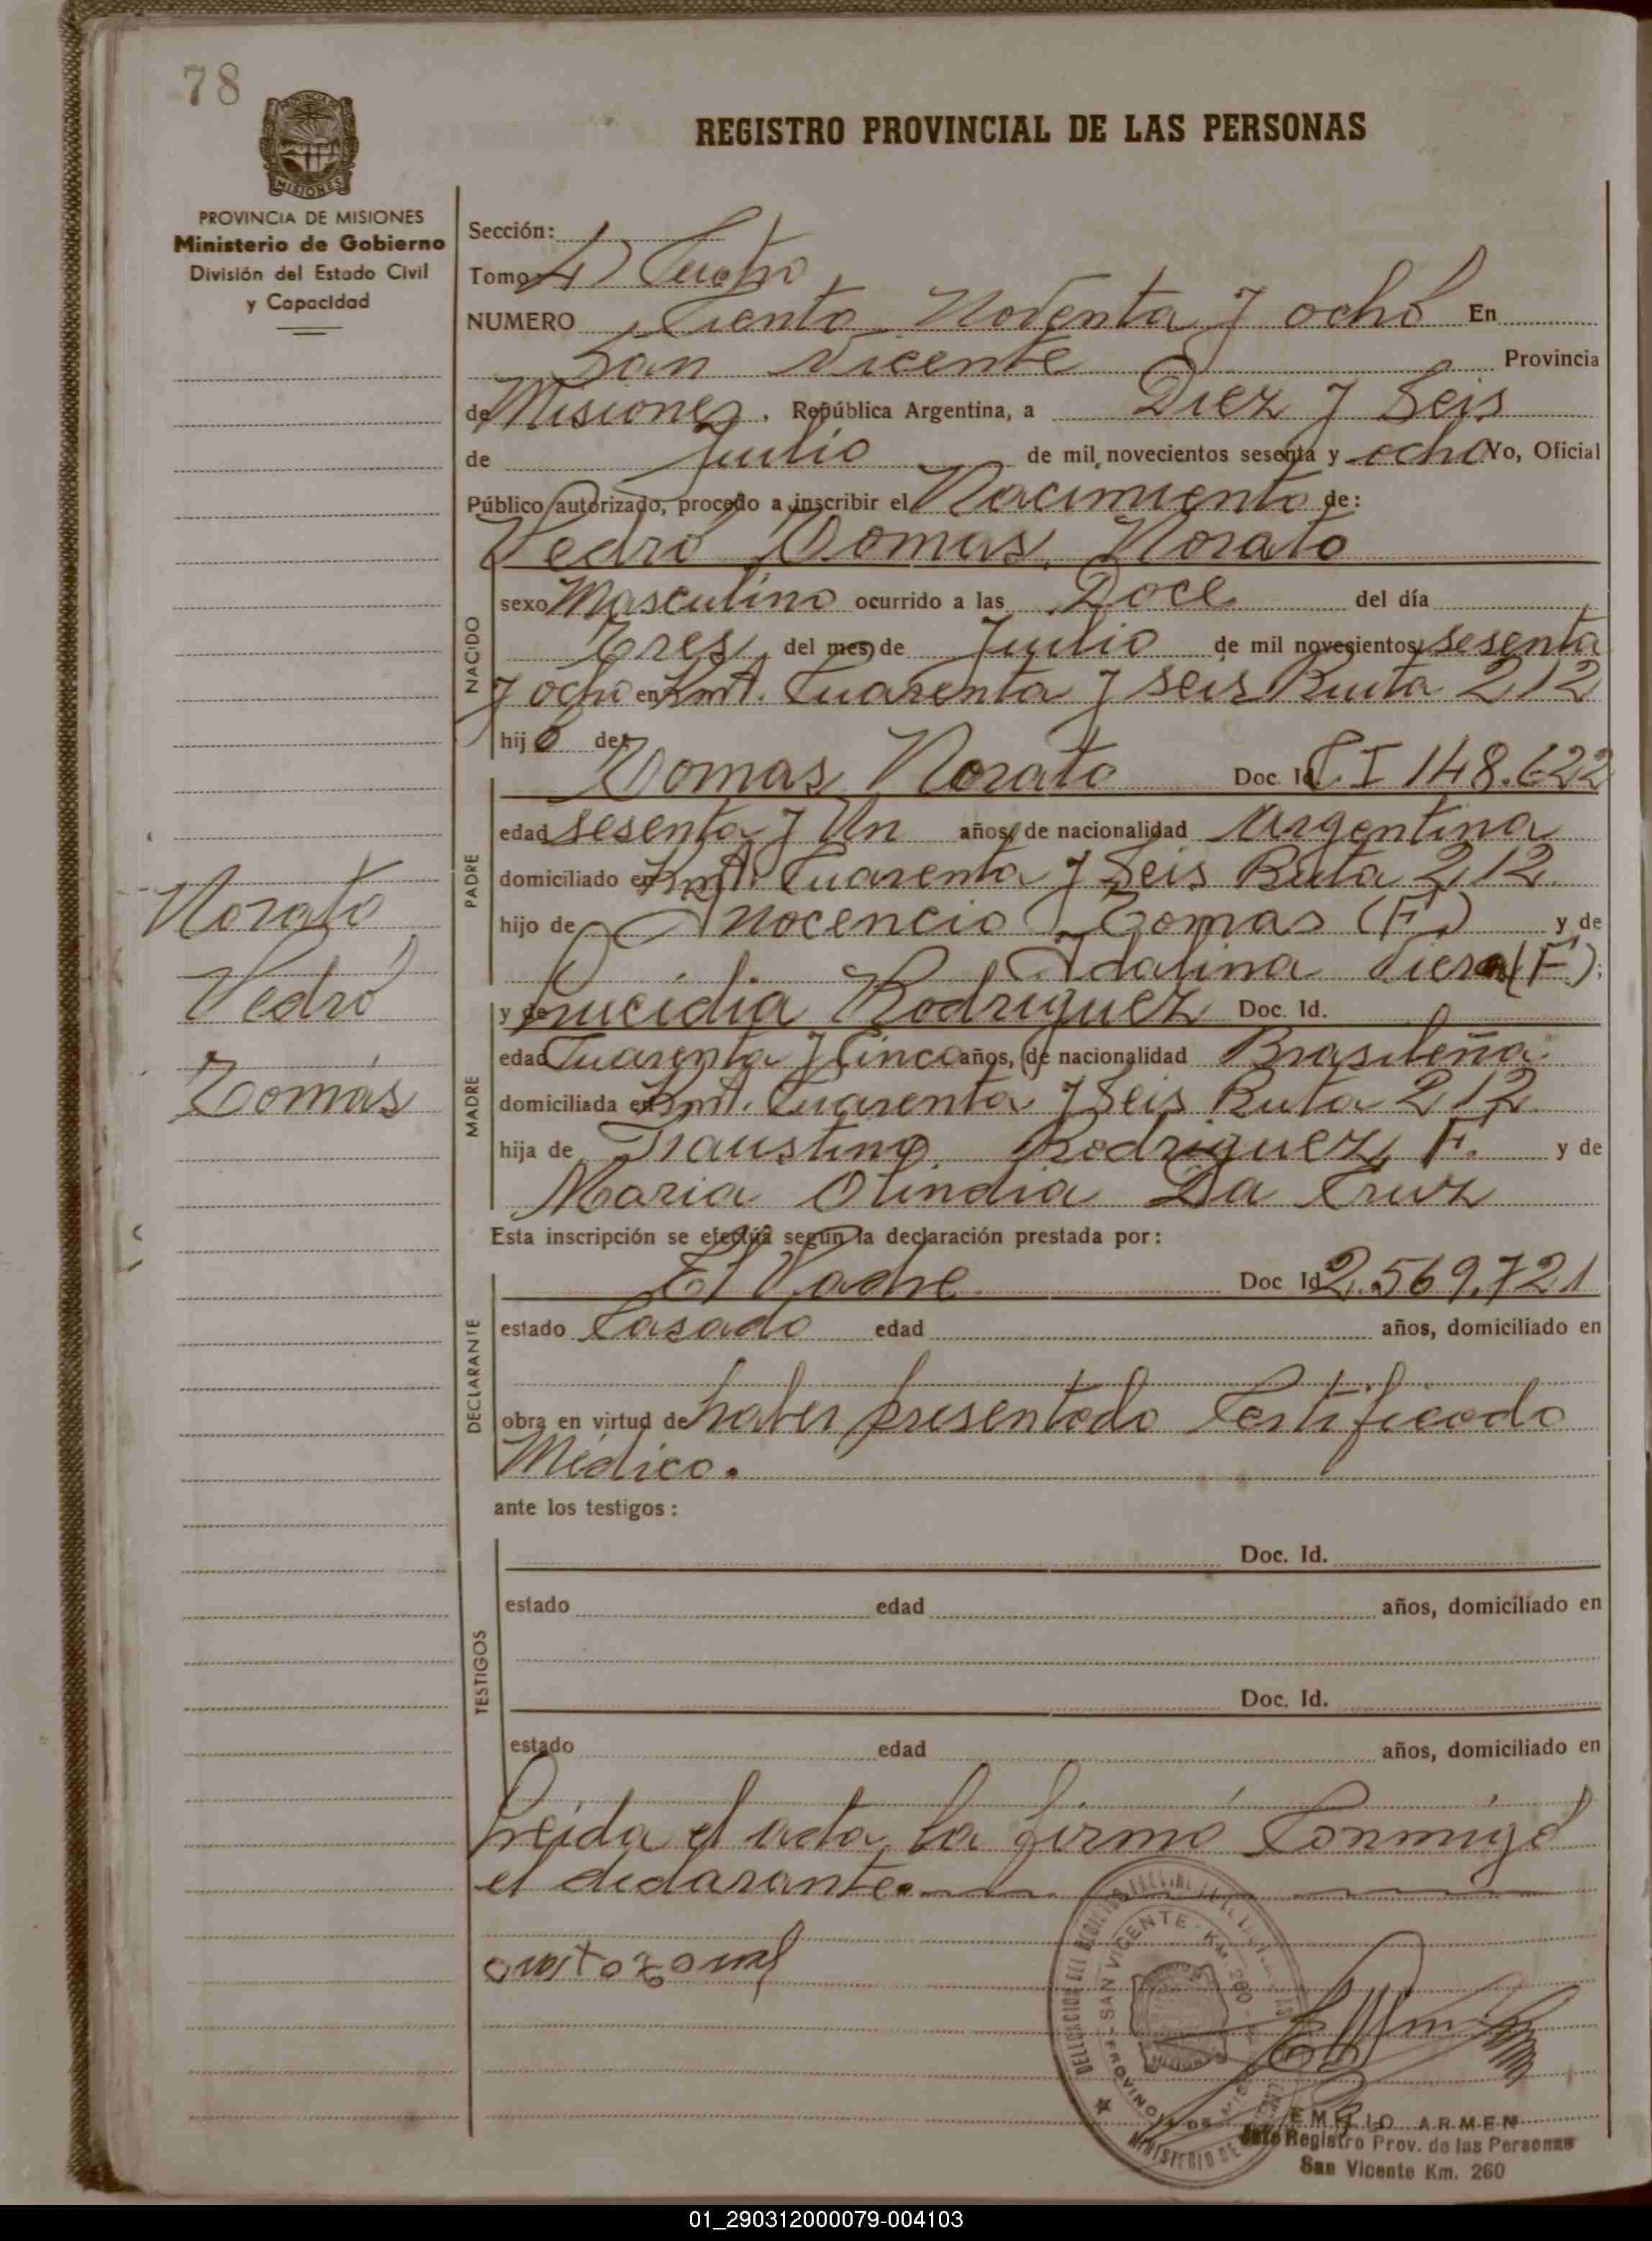 78
REGISTRO PROVINCIAL DE LAS PERSONAS
PROVINCIA DE MISIONES
MISIONES
PROVINCIA DE MISIONES
Ministerio de Gobierno
División del Estado Civil
y Capacidad
Sección:
Tomo 4) Cuatro
NUMERO Ciento Noventa y ocho En
San Vicente Provincia
de Misiones. República Argentina, a Diez y Seis
de Julio de mil novecientos sesenta y ocho Yo, Oficial
Público autorizado, procedo a inscribir el Nacimiento de:
Pedro Tomas, Norato
NACIDO
sexo Masculino ocurrido a las Doce del día
Tres del mes de Julio de mil novecientos sesenta
y ocho en Kmt. Cuarenta y seis Ruta 212
hijo de:
PADRE
Tomas Norato Doc. Id. C I 148.622
edad sesenta y Un años, de nacionalidad Argentina
domiciliado en Kmt. Cuarenta y Seis Ruta 212
hijo de Inocencio Tomas (F.) y de
Idalina (F);
Norato
Pedro
Tomás
MADRE
y de Lucidia Rodriguez Doc. Id.
edad Cuarenta y Cinco años, de nacionalidad Brasileña
domiciliada en Kmt. Cuarenta y Seis Ruta 212
hija de Faustino Rodriguez, F. y de
Maria Olindia Da Cruz
Esta inscripción se efectúa según la declaración prestada por:
DECLARANTE
El Padre Doc Id 2.569.721
estado Casado edad años, domiciliado en
obra en virtud de haber presentado Certificado
Médico.
ante los testigos:
TESTIGOS
Doc. Id.
estado edad años, domiciliado en
Doc. Id.
estado edad años, domiciliado en
Leida el acta, la firmó Conmigo
el declarante.
SAN VICENTE - KM. 260
PROVINCIA DE MISIONES
EMILIO ARMEN
Jefe Registro Prov. de las Personas
San Vicente Km. 260
01_290312000079-004103